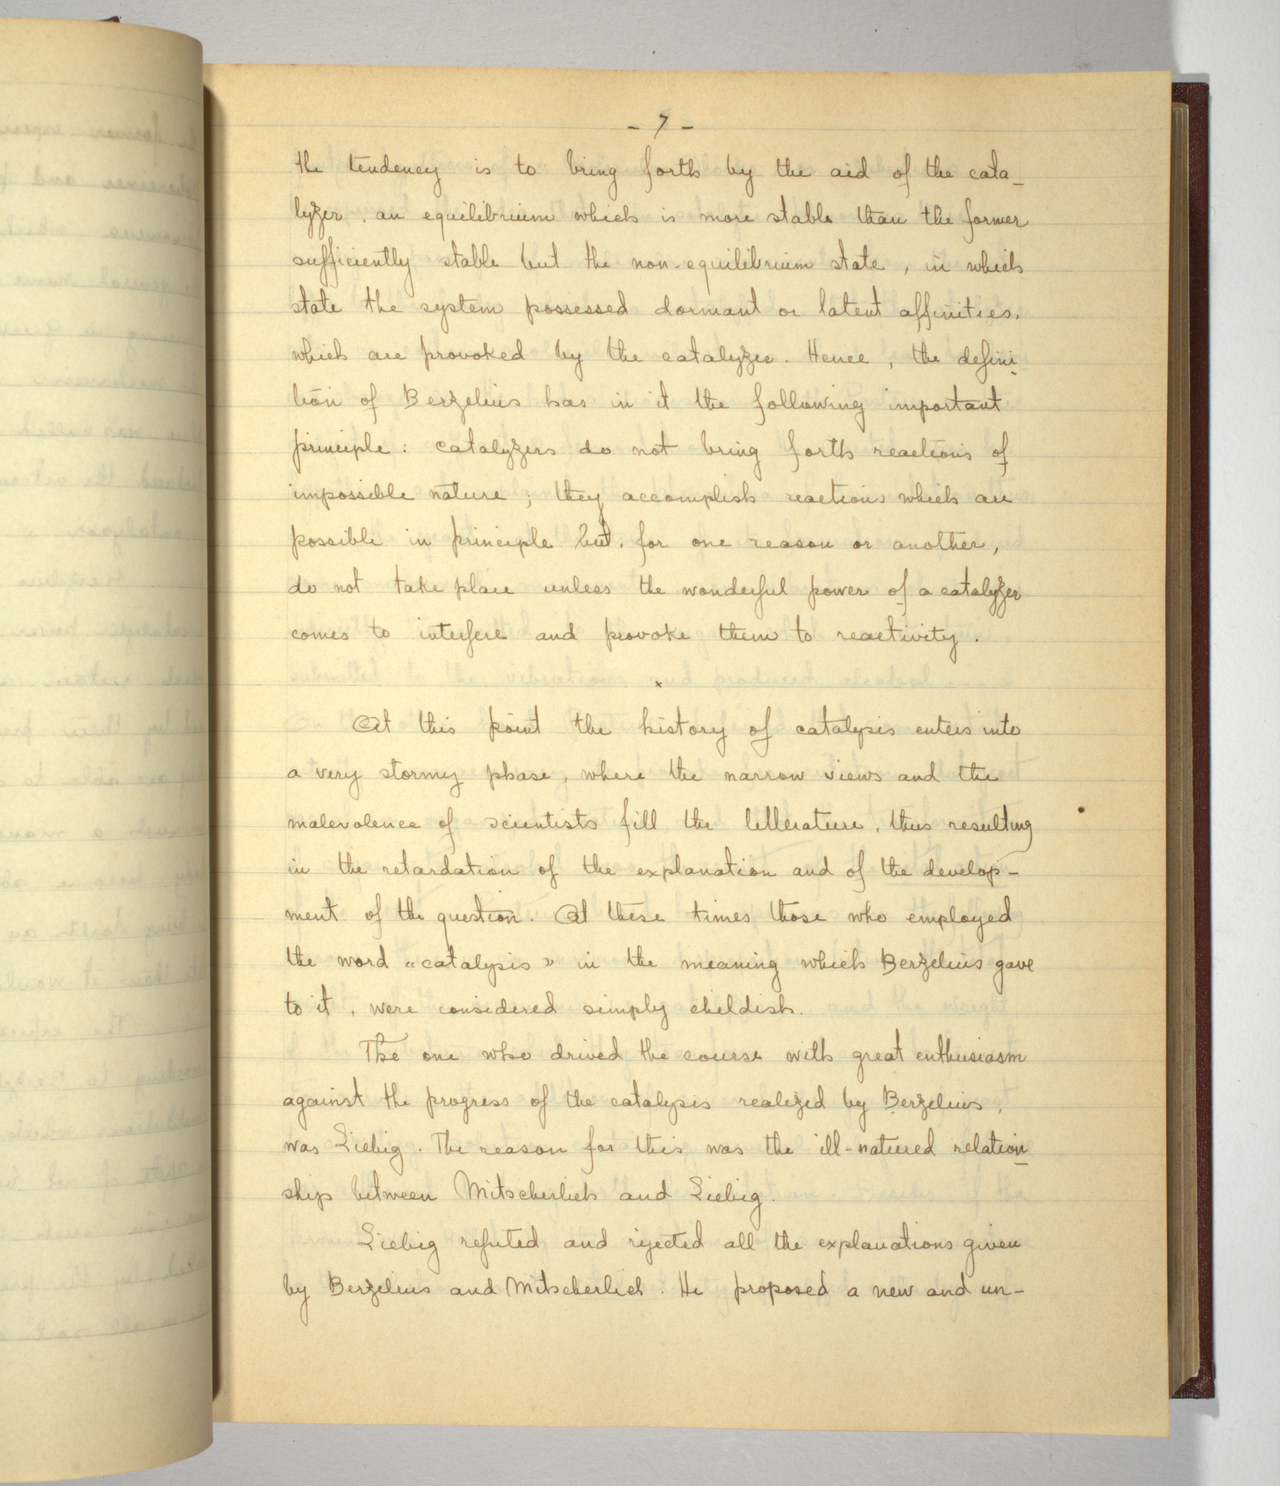 - 7 -
the tendency is to bring forth by the aid of the cata-
lyzer, an equilibrium which is more stable than the former
sufficiently stable but the non-equilibrium state, in which
state the system possessed dormant or latent affinities,
which are provoked by the catalyzer. Hence, the defini-
tion of Berzelius has in it the following important
principle: catalyzers do not bring forth reactions of
impossible nature; they accomplish reactions which are
possible in principle but, for one reason or another,
do not take place unless the wonderful power of a catalyzer
comes to interfere and provoke them to reactivity.
x
At this point the history of catalysis enters into
a very stormy phase, where the narrow views and the
malevolence of scientists fill the litterature, thus resulting
in the retardation of the explanation and of the develop-
ment of the question. At these times those who employed
the word «catalysis» in the meaning which Berzelius gave
to it, were considered simply childish.
The one who drived the course with great enthusiasm
against the progress of the catalysis realized by Berzelius,
was Liebig. The reason for this was the ill-natured relation-
ship between Mitscherlich and Liebig.
Liebig refuted and rejected all the explanations given
by Berzelius and Mitscherlich. He proposed a new and un-